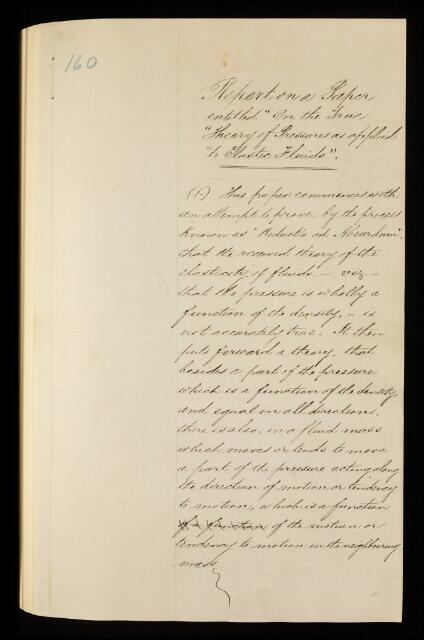 160
Report on a Paper
entitled "On the True
"Theory of Pressures as applied
"to Elastic Fluids".
(1.) This paper commences with
an attempt to prove, by the process
known as "Reductio ad Absurdum",
that the received theory of the
elasticity of fluids – viz –
that the pressure is wholly a
function of the density, – is
not accurately true. It then
puts forward a theory, that
besides a part of the pressure
which is a function of the density
and equal in all directions,
there is also, in a fluid mass
which moves or tends to move
a part of the pressure acting along
the direction of motion or tendency
to motion, which is a function
of the motion or
tendency to motion in the neighbouring
mass